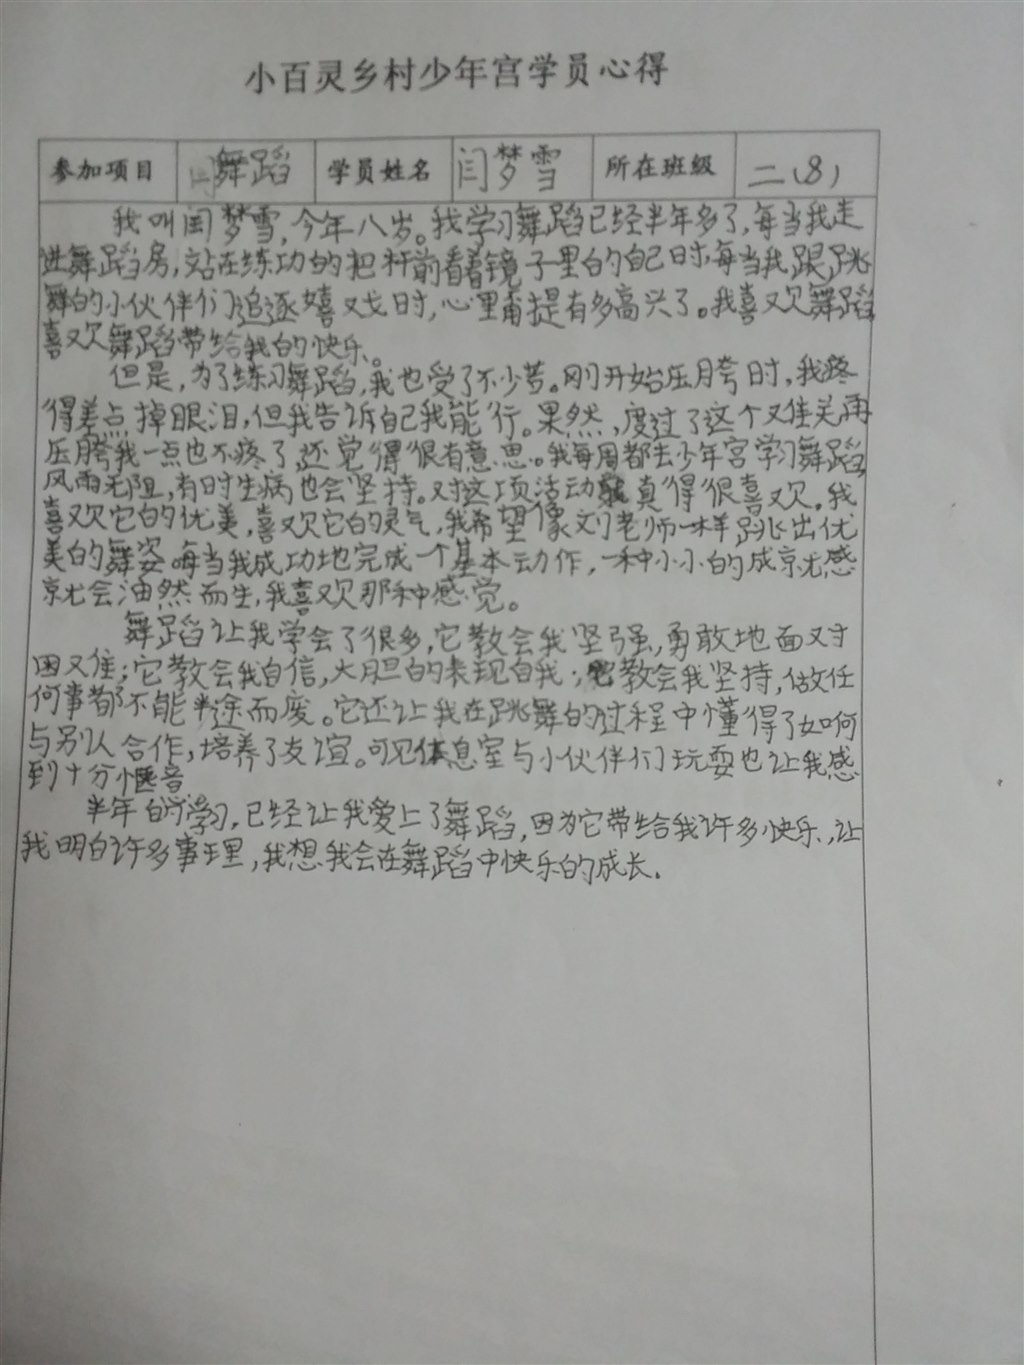 小百灵乡村少年宫学员心得
参加项目 舞蹈 学员姓名 闫梦雪 所在班级 二(8)
我叫闫梦雪,今年八岁。我学习舞蹈已经半年多了,每当我走
进舞蹈房,站在练功的把杆前看着镜子里的自己时,每当我跟跳
舞的小伙伴们追逐嬉戏时,心里甭提有多高兴了。我喜欢舞蹈
喜欢舞蹈带给我的快乐。
但是,为了练习舞蹈,我也受了不少苦。刚开始压胯时,我疼
得差点掉眼泪,但我告诉自己我能行。果然,度过了这个难关再
压胯我一点也不疼了,还觉得很有意思。我每周都去少年宫学习舞蹈
风雨无阻,有时生病也会坚持。对这项活动真得很喜欢。我
喜欢它的优美,喜欢它的灵气,我希望像刘老师一样跳出优
美的舞姿每当我成功地完成一个基本动作,一种小小的成就感
就会油然而生,我喜欢那种感觉。
舞蹈让我学会了很多,它教会我坚强,勇敢地面对
困难;它教会我自信,大胆的表现自我;它教会我坚持,做任
何事都不能半途而废。它还让我在跳舞的过程中懂得了如何
与别人合作,培养了友谊。可见休息室与小伙伴们玩耍也让我感
到十分惬意
半年的学习,已经让我爱上了舞蹈,因为它带给我许多快乐,让
我明白许多事理,我想我会在舞蹈中快乐的成长.